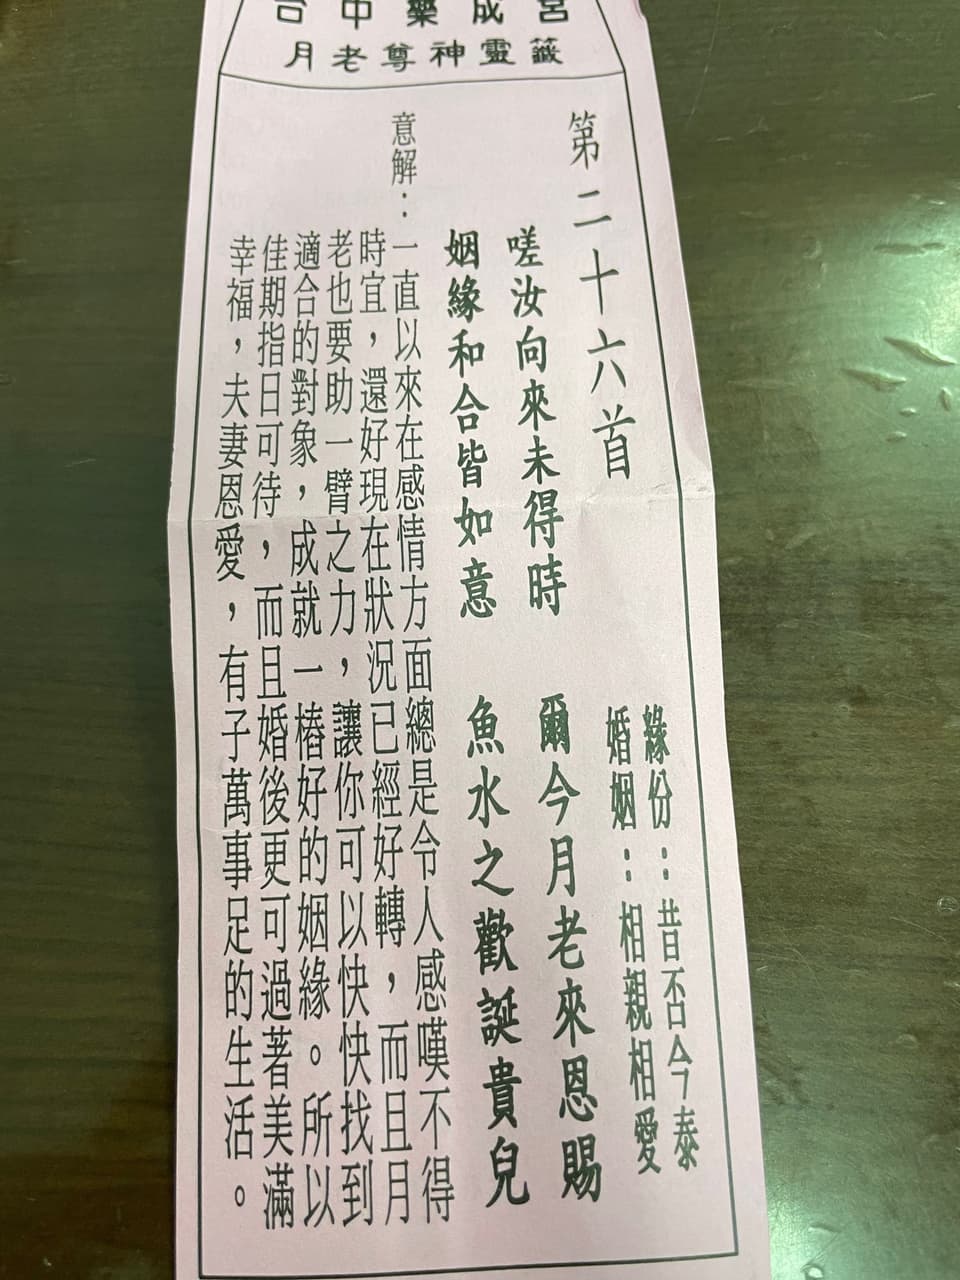 台中樂成宮
月老尊神靈籤
第二十六首
緣份：昔否今泰
婚姻：相親相愛
嗟汝向來未得時　爾今月老來恩賜
姻緣和合皆如意　魚水之歡誕貴兒
意解：一直以來在感情方面總是令人感嘆不得
時宜，還好現在狀況已經好轉，而且月
老也要助一臂之力，讓你可以快快找到
適合的對象，成就一樁好的姻緣。所以
佳期指日可待，而且婚後更可過著美滿
幸福，夫妻恩愛，有子萬事足的生活。